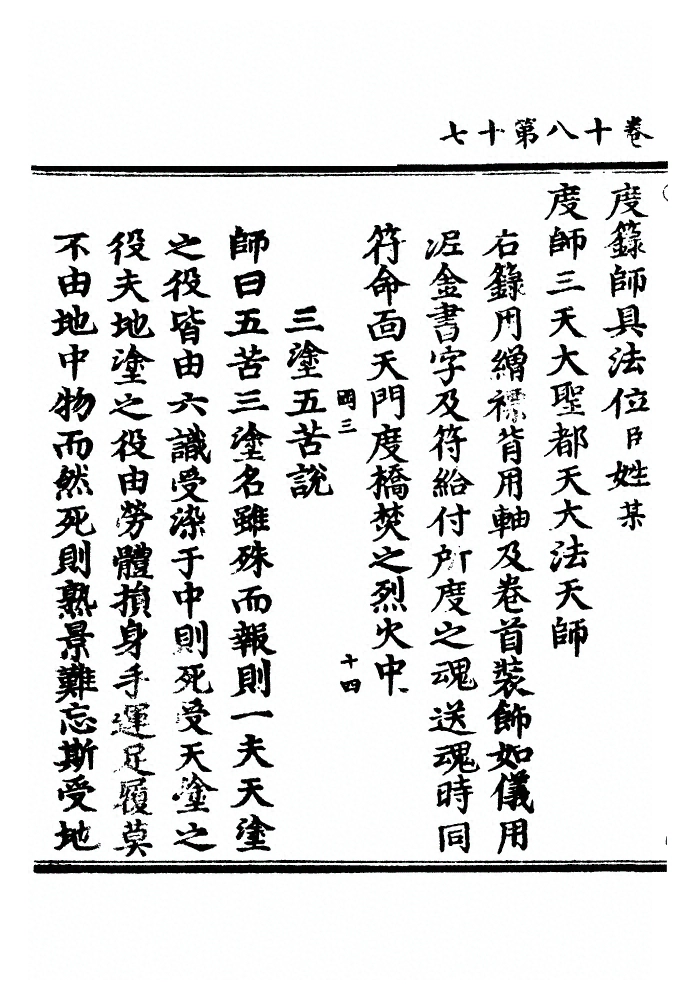 七十第八十卷
度籙師具法位臣姓某
度師三天大聖都天大法天師
右籙用繒褾背用軸及卷首裝飾如儀用
泥金書字及符給付所度之魂送魂時同
符命面天門度橋焚之烈火中
罔三 十四
三塗五苦說
師曰五苦三塗名雖殊而報則一夫天塗
之役皆由六識受染于中則死受天塗之
役夫地塗之役由勞體損身手運足履莫
不由地中物而然死則熟景難忘斯受地